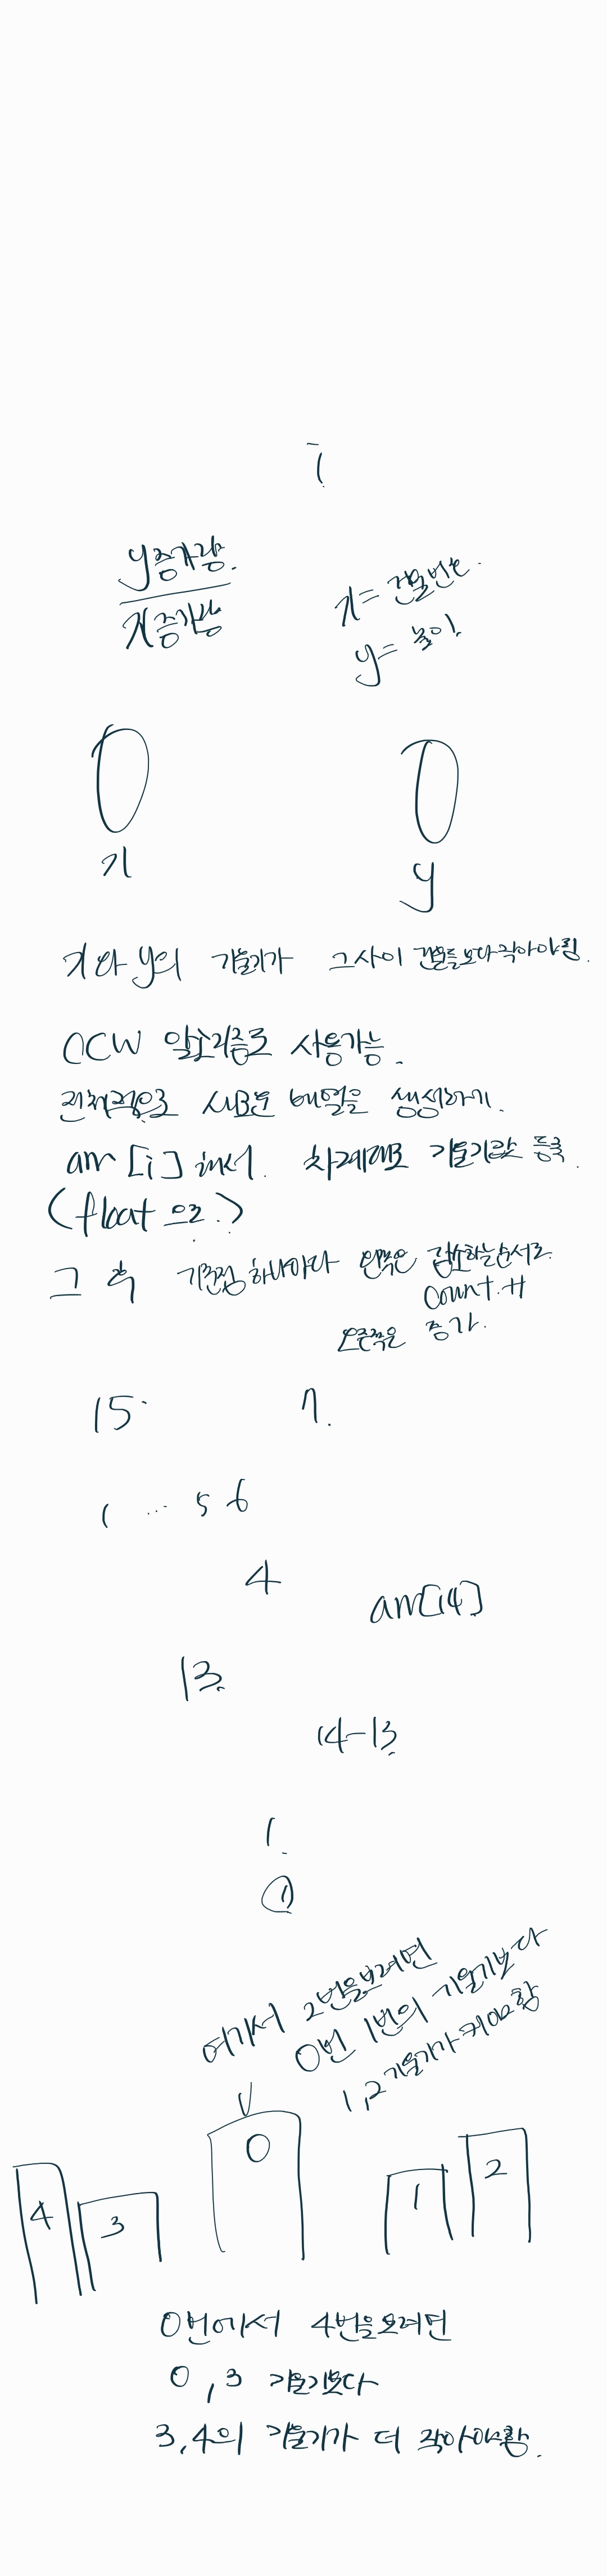 i
y증가량.
x증가량
x = 건물번호.
y = 높이.
0
0
x
y
x와 y의 기울기가 그사이 건물들보다작아야됨.
CCW 알고리즘로 사용가능.
전체적으로 배열을 생성하기.
arr [i] 에서. 차례대로 기울기값 등록.
(float 으로?)
그 후 기준점하나마다 왼쪽은 감소하는순서로.
count ++
오른쪽은 증가.
15.
7.
1 ... 5 6
4
arr[14]
13.
14-13.
1.
①
여기서 2번을보려면
0번 1번의 기울기보다
1,2기울기가커야함
0
4
3
1
2
0번에서 4번을보려면
0, 3 기울기보다
3,4의 기울기가 더 작아야함.